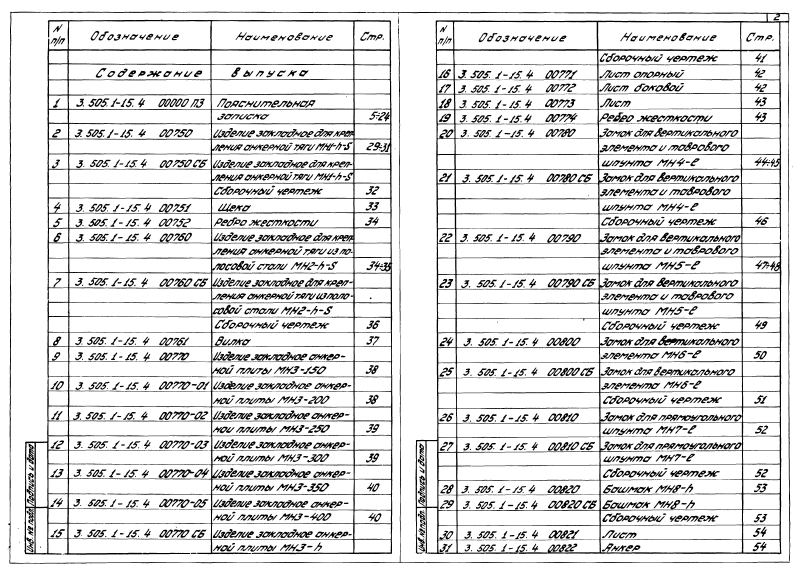 2
N п/п Обозначение Наименование Стр.
Содержание выпуска
1 3.505.1-15.4 00000 ПЗ Пояснительная
записка 5÷24
2 3.505.1-15.4 00750 Изделие закладное для креп
ления анкерной тяги МН1-h-S 29÷31
3 3.505.1-15.4 00750 СБ Изделие закладное для креп-
ления анкерной тяги МН1-h-S
Сборочный чертеж 32
4 3.505.1-15.4 00751 Щека 33
5 3.505.1-15.4 00752 Ребро жесткости 34
6 3.505.1-15.4 00760 Изделие закладное для креп
ления анкерной тяги из по-
лосовой стали МН2-h-S 34÷35
7 3.505.1-15.4 00760 СБ Изделие закладное для креп-
ления анкерной тяги из поло-
совой стали МН2-h-S
Сборочный чертеж 36
8 3.505.1-15.4 00761 Вилка 37
9 3.505.1-15.4 00770 Изделие закладное анкер-
ной плиты МН3-150 38
10 3.505.1-15.4 00770-01 Изделие закладное анкер-
ной плиты МН3-200 38
11 3.505.1-15.4 00770-02 Изделие закладное анкер-
ной плиты МН3-250 39
12 3.505.1-15.4 00770-03 Изделие закладное анкер-
ной плиты МН3-300 39
13 3.505.1-15.4 00770-04 Изделие закладное анкер-
ной плиты МН3-350 40
14 3.505.1-15.4 00770-05 Изделие закладное анкер-
ной плиты МН3-400 40
15 3.505.1-15.4 00770 СБ Изделие закладное анкер-
ной плиты МН3-h
Инв. № подл. Подпись и дата
N п/п Обозначение Наименование Стр.
Сборочный чертеж 41
16 3.505.1-15.4 00771 Лист опорный 42
17 3.505.1-15.4 00772 Лист боковой 42
18 3.505.1-15.4 00773 Лист 43
19 3.505.1-15.4 00774 Ребро жесткости 43
20 3.505.1-15.4 00780 Замок для вертикального
элемента и таврового
шпунта МН4-ℓ 44÷45
21 3.505.1-15.4 00780 СБ Замок для вертикального
элемента и таврового
шпунта МН4-ℓ
Сборочный чертеж 46
22 3.505.1-15.4 00790 Замок для вертикального
элемента и таврового
шпунта МН5-ℓ 47÷48
23 3.505.1-15.4 00790 СБ Замок для вертикального
элемента и таврового
шпунта МН5-ℓ
Сборочный чертеж 49
24 3.505.1-15.4 00800 Замок для вертикального
элемента МН6-ℓ 50
25 3.505.1-15.4 00800 СБ Замок для вертикального
элемента МН6-ℓ
Сборочный чертеж 51
26 3.505.1-15.4 00810 Замок для прямоугольного
шпунта МН7-ℓ 52
27 3.505.1-15.4 00810 СБ Замок для прямоугольного
шпунта МН7-ℓ
Сборочный чертеж 52
28 3.505.1-15.4 00820 Башмак МН8-h 53
29 3.505.1-15.4 00820 СБ Башмак МН8-h
Сборочный чертеж 53
30 3.505.1-15.4 00821 Лист 54
31 3.505.1-15.4 00822 Анкер 54
Инв. № подл. Подпись и дата